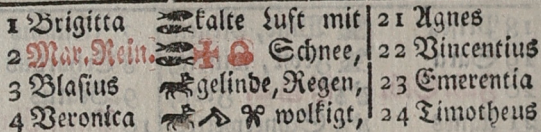 1 Brigitta kalte Luft mit 21 Agnes
2 Mar. Rein. Schnee, 22 Vincentius
3 Blasius gelinde, Regen, 23 Emerentia
4 Veronica wolkigt, 24 Timotheus